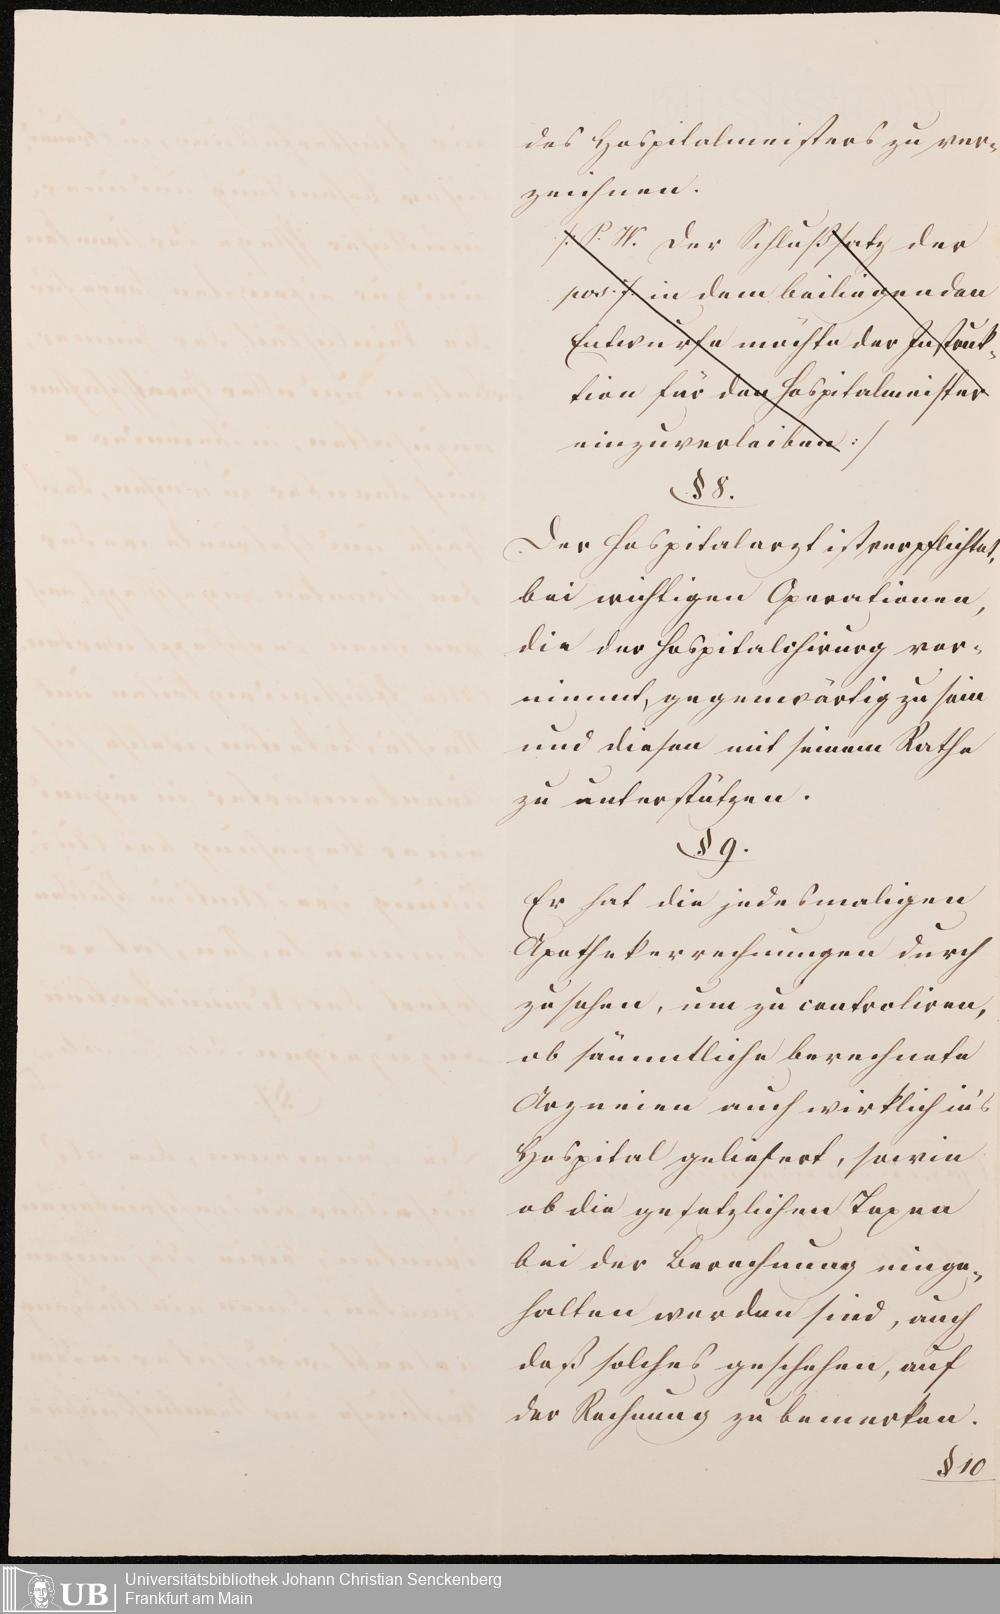 des Hospitalmeisters zu ver-
zeichnen.
/: P. N. Der Schlußsatz der
pos. f. in dem beiliegenden
Entwurfe möchte der Instruk-
tion für den Hospitalmeister
einzuverleiben :/
§ 8.
Der Hospitalarzt ist verpflichtet,
bei wichtigen Operationen,
die der Hospitalchirurg vor-
nimmt, gegenwärtig zu sein
und diesen mit seinem Rathe
zu unterstützen.
§ 9.
Er hat die jedesmaligen
Apothekerrechnungen durch
zusehen, um zu controliren,
ob sämmtliche berechnete
Arzneien auch wirklich in's
Hospital geliefert, sowie
ob die gesetzlichen Taxen
bei der Berechnung einge-
halten worden sind, auch
daß solches geschehen, auf
der Rechnung zu bemerken.
§ 10
UB
Universitätsbibliothek Johann Christian Senckenberg
Frankfurt am Main